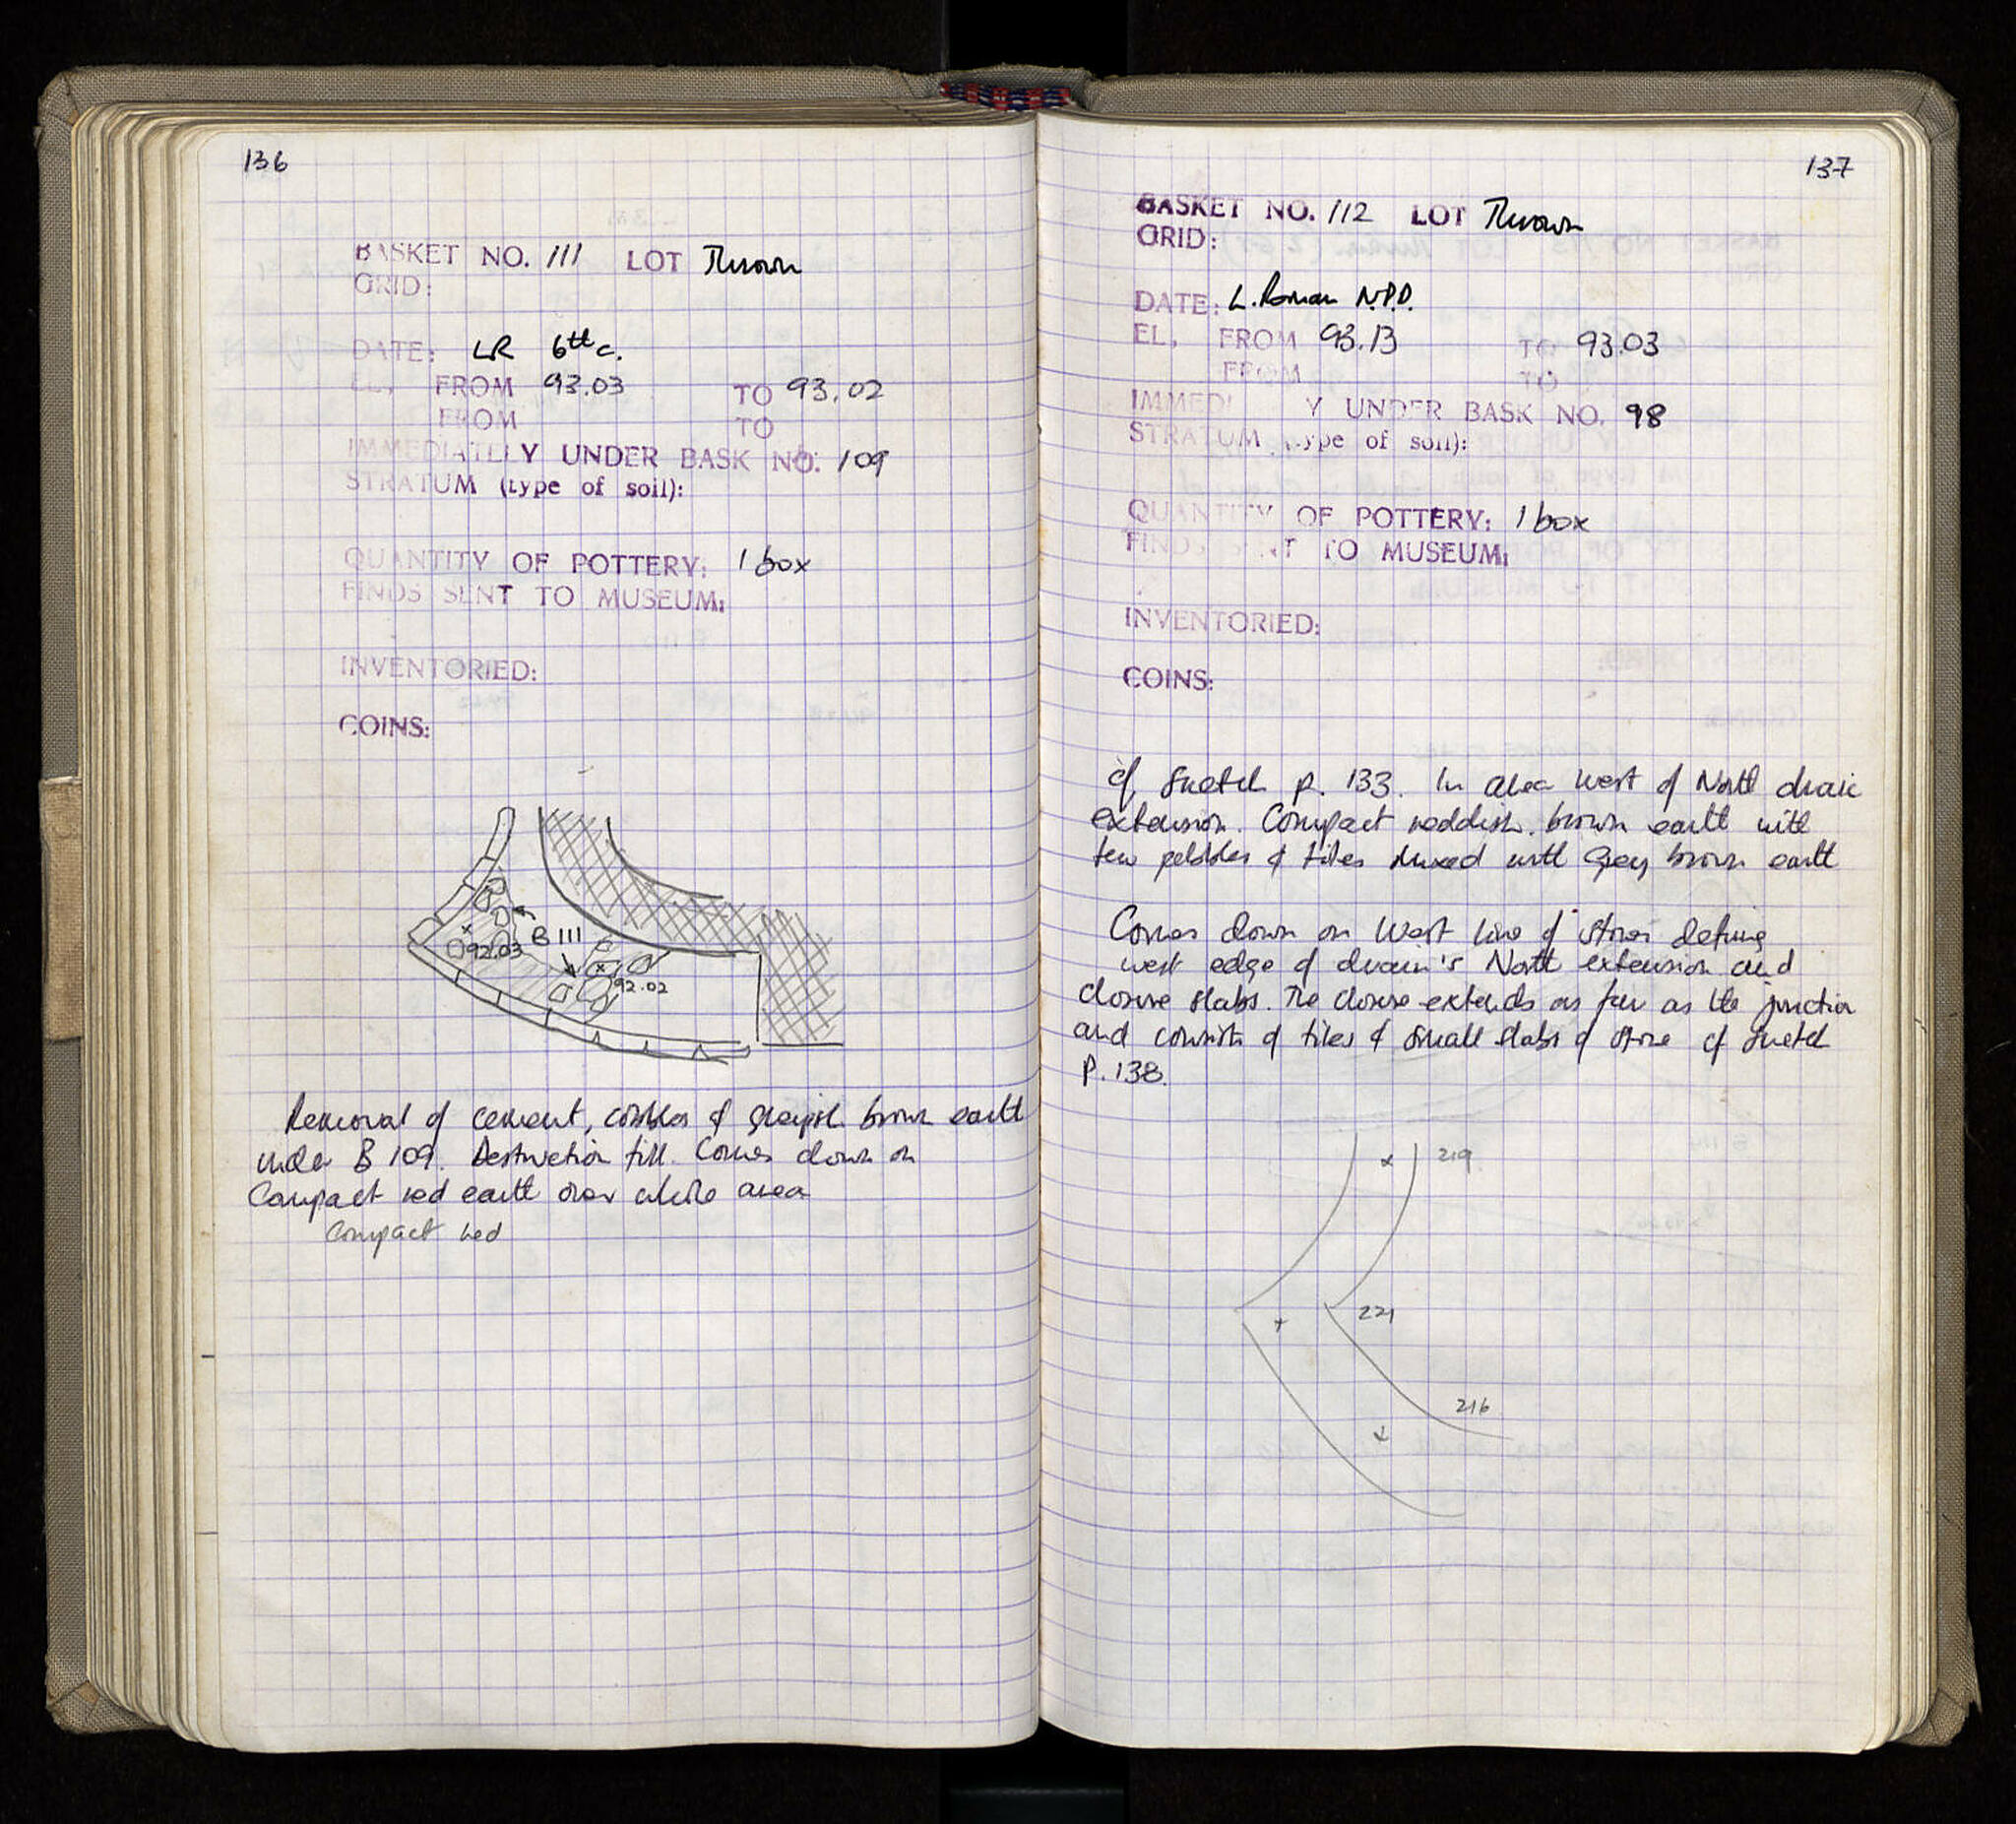 136
BASKET NO. 111 LOT Thrown
GRID:
DATE: LR 6th c.
EL, FROM 93.03 TO 93.02
FROM TO
IMMEDIATELY UNDER BASK NO. 109
STRATUM (type of soil):
QUANTITY OF POTTERY: 1 box
FINDS SENT TO MUSEUM:
INVENTORIED:
COINS:
B 111
92.03
92.02
Removal of cement, cobbles & greyish brown earth
under B 109. Destruction fill. Comes down on
Compact red earth over whole area
Compact red
137
BASKET NO. 112 LOT Thrown
GRID:
DATE: L. Roman N.P.D.
EL, FROM 93.13 TO 93.03
FROM TO
IMMEDI Y UNDER BASK NO. 98
STRATUM type of soil):
QUANTITY OF POTTERY: 1 box
FINDS SENT TO MUSEUM:
INVENTORIED:
COINS:
cf, sketch p. 133. In area West of North drain
extension. Compact reddish. brown earth with
few pebbles & tiles mixed with grey brown earth
Comes down on West line of stones defining
west edge of drain's North extension and
closure slabs. The closure extends as far as the junction
and consists of tiles & small slabs of stone cf sketch
P. 138.
219
221
216